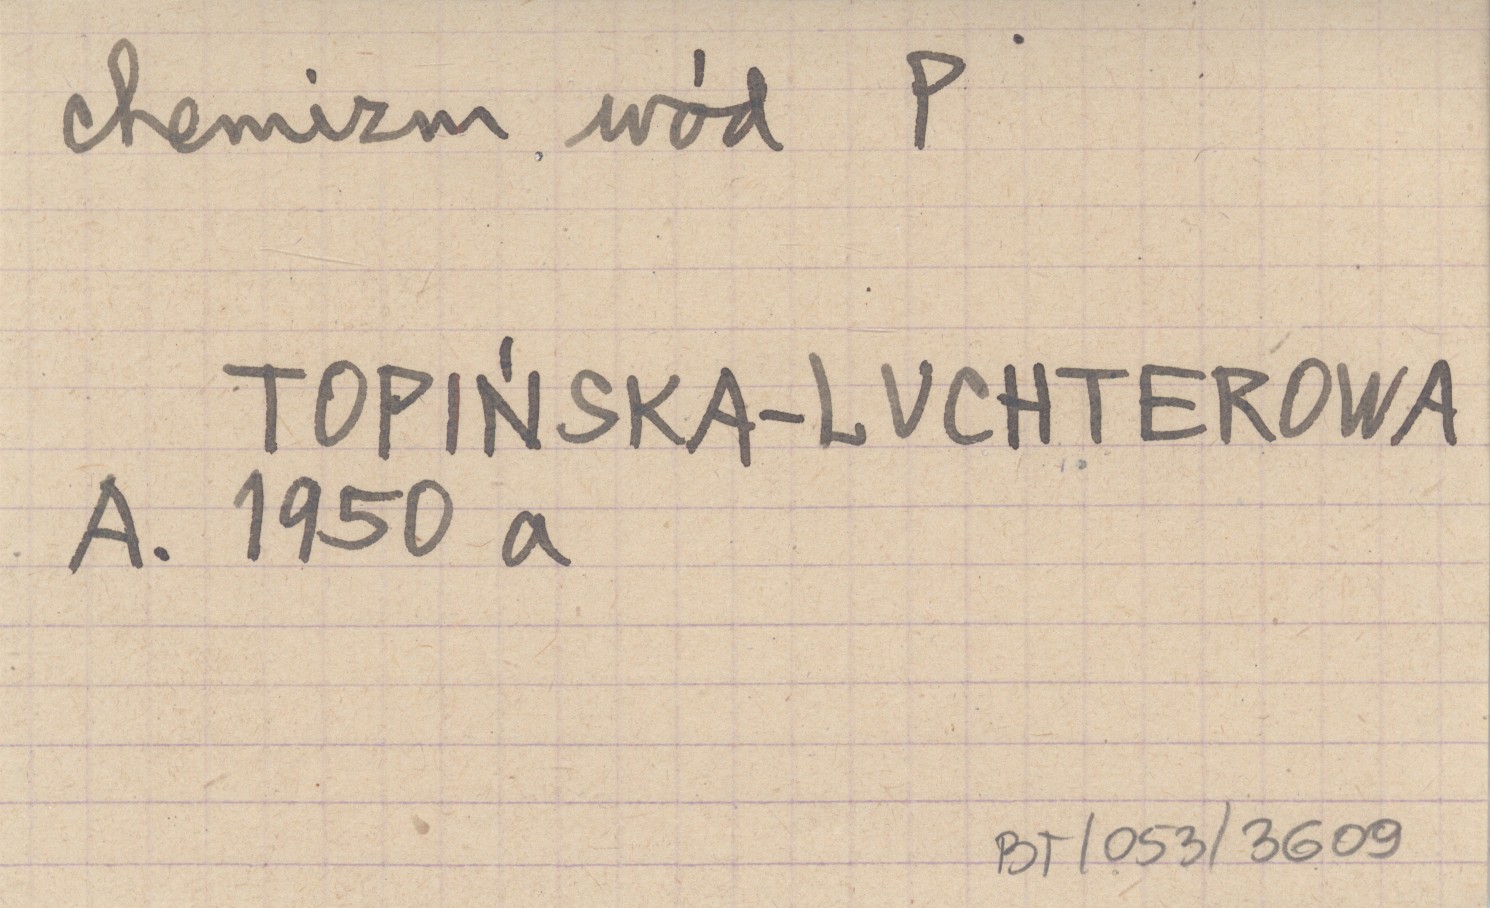 chemizm wód P
TOPIŃSKA-LUCHTEROWA
A. 1950 a
BT/053/3609